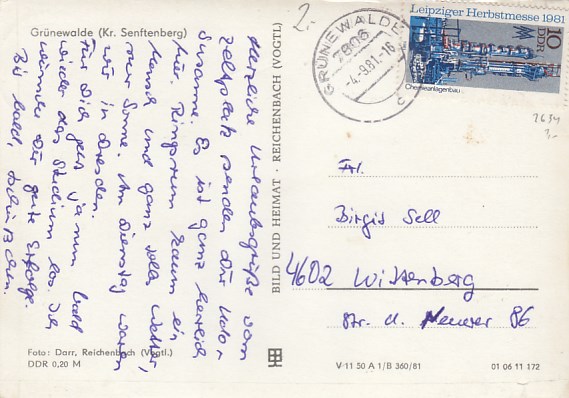 Grünewalde (Kr. Senftenberg)
Herzliche Urlaubsgrüße vom
Zeltplatz senden Dir
Susanne. Es ist ganz herrlich
hier. Ringsrum kaum ein
Mensch und ganz tolles Wetter,
nur Sonne. Am Dienstag waren
wir in Dresden.
Für Dich geht ja nun bald
wieder das Studium los. Ich
wünsche Dir gute Erfolge.
Bis bald,
Foto: Darr, Reichenbach (Vogtl.)
DDR 0,20 M
BILD UND HEIMAT · REICHENBACH (VOGTL)
2.-
GRÜNEWALDE
7806
-4.-9.81.-16
a
Leipziger Herbstmesse 1981
10
DDR
Chemieanlagenbau
2634
Frl.
Birgit Sell
4602 Wittenberg
Str. d. Neuerer 86
V·11 50 A 1/B 360/81
01 06 11 172